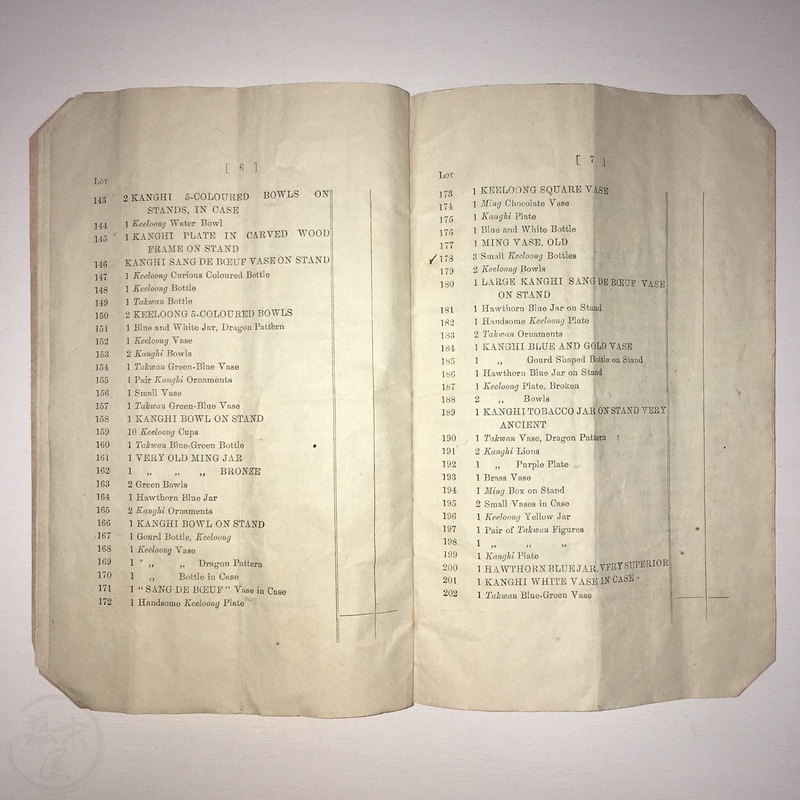 [ 6 ]
LOT
143 2 KANGHI 5-COLOURED BOWLS ON
STANDS, IN CASE
144 1 Keeloong Water Bowl
145 1 KANGHI PLATE IN CARVED WOOD
FRAME ON STAND
146 KANGHI SANG DE BŒUF VASE ON STAND
147 1 Keeloong Curious Coloured Bottle
148 1 Keeloong Bottle
149 1 Takwan Bottle
150 2 KEELOONG 5-COLOURED BOWLS
151 1 Blue and White Jar, Dragon Pattern
152 1 Keeloong Vase
153 2 Kanghi Bowls
154 1 Takwan Green-Blue Vase
155 1 Pair Kanghi Ornaments
156 1 Small Vase
157 1 Takwan Green-Blue Vase
158 1 KANGHI BOWL ON STAND
159 10 Keeloong Cups
160 1 Takwan Blue-Green Bottle
161 1 VERY OLD MING JAR
162 1 „ „ „ BRONZE
163 2 Green Bowls
164 1 Hawthorn Blue Jar
165 2 Kanghi Ornaments
166 1 KANGHI BOWL ON STAND
167 1 Gourd Bottle, Keeloong
168 1 Keeloong Vase
169 1 „ „ Dragon Pattern
170 1 „ Bottle in Case
171 1 "SANG DE BŒUF" Vase in Case
172 1 Handsome Keeloong Plate
[ 7 ]
LOT
173 1 KEELOONG SQUARE VASE
174 1 Ming Chocolate Vase
175 1 Kanghi Plate
176 1 Blue and White Bottle
177 1 MING VASE, OLD
✓ 178 3 Small Keeloong Bottles
179 2 Keeloong Bowls
180 1 LARGE KANGHI SANG DE BŒUF VASE
ON STAND
181 1 Hawthorn Blue Jar on Stand
182 1 Handsome Keeloong Plate
183 2 Takwan Ornaments
184 1 KANGHI BLUE AND GOLD VASE
185 1 „ Gourd Shaped Bottle on Stand
186 1 Hawthorn Blue Jar on Stand
187 1 Keeloong Plate, Broken
188 2 „ Bowls
189 1 KANGHI TOBACCO JAR ON STAND VERY
ANCIENT
190 1 Takwan Vase, Dragon Pattern
191 2 Kanghi Lions
192 1 „ Purple Plate
193 1 Brass Vase
194 1 Ming Box on Stand
195 2 Small Vases in Case
196 1 Keeloong Yellow Jar
197 1 Pair of Takwan Figures
198 1 „ „ „
199 1 Kanghi Plate
200 1 HAWTHORN BLUE JAR, VERY SUPERIOR
201 1 KANGHI WHITE VASE IN CASE
202 1 Takwan Blue-Green Vase
幕末屋